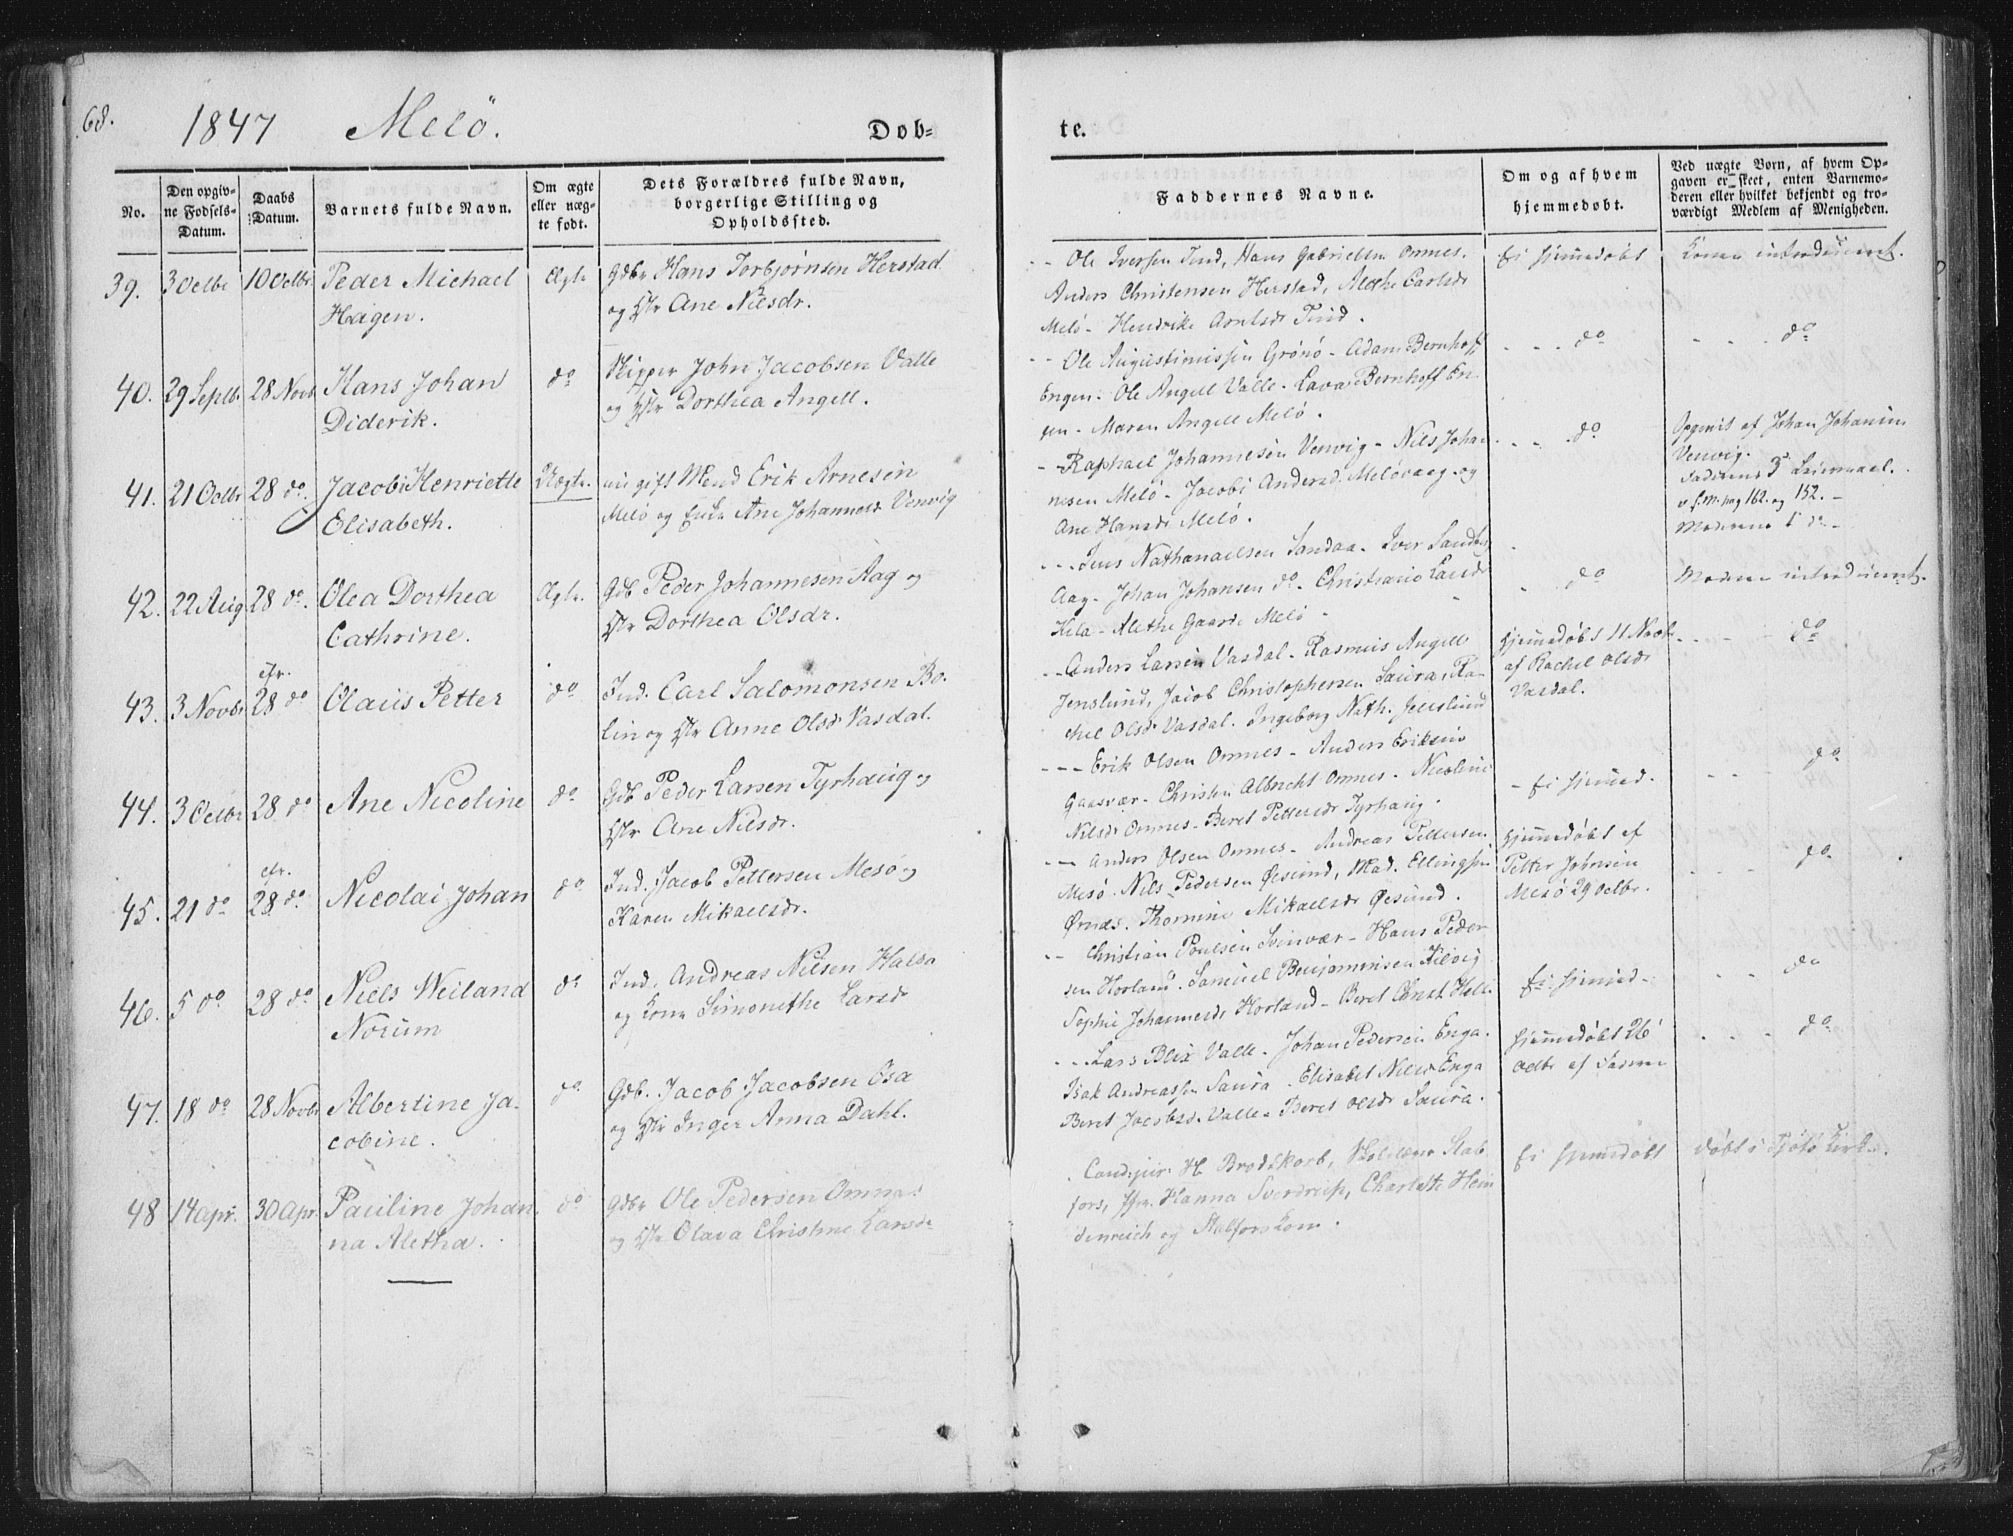 68.
1847 Melö.
Dob-
te.
No.
Den opgiv-
ne Fodsels-
Datum.
Daabs
Datum.
Barnets fulde Navn.
Om ægte
eller næg-
te født.
Dets Forældres fulde Navn,
borgerlige Stilling og
Opholdssted.
Faddernes Navne.
Om og af hvem
hjemmedobt.
Ved nægte Born, af hvem Op-
gaven er skeet, enten Barnemo-
deren eller hvilket bekjendt og tro-
værdigt Medlem af Menigheden.
39. 3 Octbr 10 Octbr. Peder Michael
Hagen.
Ægte
Gdbr Hans Torbjørnsen Herstad
og Hr Ane Nilsdr.
Ole Iversen Tind, Hans Gabrielsen Onnes.
Anders Christensen Herstad, Alethe Carlsdr
Melö - Hendrike Arntsdr Tind.
Ei hjemmedøbt
Konen introduceret.
40. 29 Septbr. 28 Novb. Hans Johan
Diderik.
do
Skipper John Jacobsen Valle
og Hr Dorthea Angell.
Ole Augustinussen Grönö - Adam Bernhoff
Engen - Ole Angell Valle - Lava Bernhoff En-
gen - Maren Angell Melö.
do
do
41. 21 Octbr 28 do. Jacobi Henriette
Elisabeth.
Uægte.
ugift Mand Erik Arnesen
Melö og Ane Johannesdr Venvig
Raphael Johannesen Venvig - Nils Johan-
nesen Melö - Jacobi Andersd. Melövaag - og
Ane Hansdr Melö.
do
Opgivet af Johan Johansen
Venvig.
Faderens 3d Leiermaal.
pag 162. og 152. -
Moderens 1 do -
42. 22 Aug 28 do. Olea Dorthea
Cathrine.
Ægte.
Gdb Peder Johannesen Aag og
Hr Dorthea Olsdr.
Jens Nathanaelsen Sandaa - Iver
Aag - Johan Johansen do - Christiane Larsdr
Kila - Alethe Gaarde Melö
do
Moderen introduceret.
43. 3 Novbr cfr. 28 do Olaus Petter
do
Ind. Carl Salomonsen Bo-
lin og Hr Anne Olsdr Vasdal.
Anders Larsen Vasdal - Rasmus Angell
Jenslund, Jacob Christophersen Saura, Ra-
chel Olsdr Vasdal. Ingeborg Nath. Jenslund
Hjemmedøbt 11 Novb.
af Rachel Olsdr
Vasdal.
do
44. 3 Octbr 28 do Ane Nicoline
do
Gdb Peder Larsen Tyrhaug og
Hr Ane Nilsdr.
Erik Olsen Onnes - Anders Eriksen
Gaasvær - Christen Albrecht Onnes - Nicoline
Nilsdr Onnes - Beret Pettersdr Tyrhaug.
Ei hjemmed.
do
45. 21 do cfr. 28 do Nicolai Johan
do
Ind. Jacob Pettersen Mesö og
Karen Mikaelsdr.
Anders Olsen Onnes - Andreas Pettersen
Mesö. Nils Pedersen Øesund, Mad. Ellingsen
Ørnæs. Thomine Mikaelsdr Øesund.
Hjemmedøbt af
Petter Johnsen
Mesö 29 Octbr.
do
46. 5 do 28 do Niels Weiland
Norum
do
Ind. Andreas Nilsen Halsa
og Kone Simonethe Larsdr
Christian Poulsen Svinvær - Hans Peder-
sen Horland - Samuel Benjaminsen Kilvig
Sophie Johannesdr Horland - Beret Christ.
Ei hjemmed.
do
47. 18 do 28 Novbr Albertine Ja-
cobine.
do
Gdb. Jacob Jacobsen Osa
og Hr Inger Anna Dahl.
Lars Blix Valle - Johan Pedersen Enga.
Isak Andreassen Saura. Elisabet Nilsdr Enga
Beret Jacobsdr Valle - Beret Olsdr Saura.
Hjemmedøbt 26
Octbr af Faderen
do
48 14 Apr. 30 Apr. Pauline Johan-
na Aletha.
do
Gdbr Ole Pedersen Onnæs
og Hr Olava Christine Larsdr
Cand. jur. H Brodtkorb, Stab-
fors, Jfr. Hanna Sverdrup, Charlotte Hein-
denreich og Stabfors Kone.
Ei hjemmedøbt
Døbt i Tjötö Kirke.